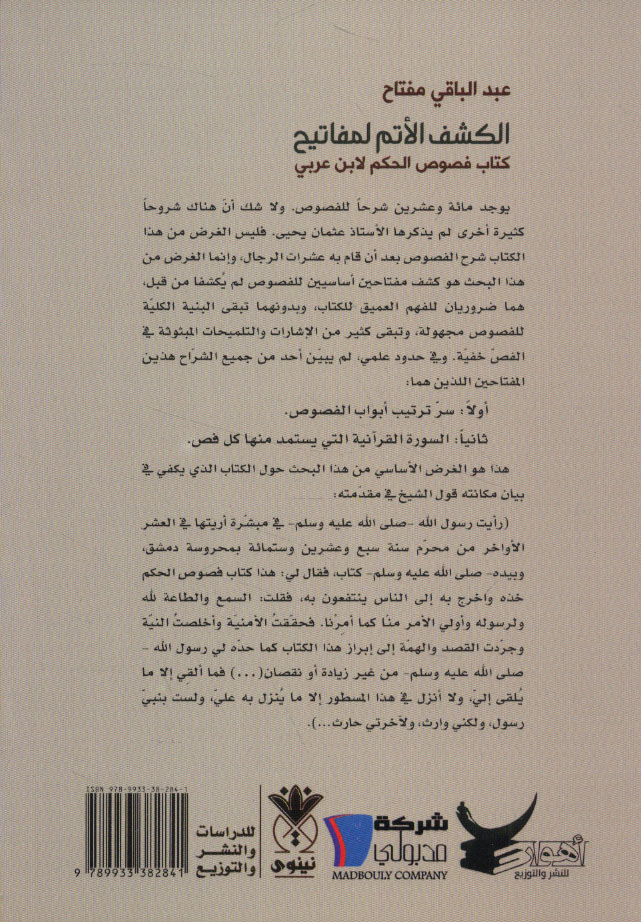 عبد الباقي مفتاح
الكشف الأتم لمفاتيح
كتاب فصوص الحكم لابن عربي
يوجد مائة وعشرين شرحاً للفصوص. ولا شك أنّ هناك شروحاً
كثيرة أخرى لم يذكرها الأستاذ عثمان يحيى. فليس الغرض من هذا
الكتاب شرح الفصوص بعد أن قام به عشرات الرجال، وإنما الغرض من
هذا البحث هو كشف مفتاحين أساسيين للفصوص لم يُكشفا من قبل،
هما ضروريان للفهم العميق للكتاب، وبدونهما تبقى البنية الكليّة
للفصوص مجهولة، وتبقى كثير من الإشارات والتلميحات المبثوثة في
الفصّ خفيّة. وفي حدود علمي، لم يبيّن أحد من جميع الشرّاح هذين
المفتاحين اللذين هما:
أولاً: سرّ ترتيب أبواب الفصوص.
ثانياً: السورة القرآنية التي يستمد منها كل فص.
هذا هو الغرض الأساسي من هذا البحث حول الكتاب الذي يكفي في
بيان مكانته قول الشيخ في مقدّمته:
(رأيت رسول الله -صلى الله عليه وسلم- في مبشّرة أريتها في العشر
الأواخر من محرّم سنة سبع وعشرين وستمائة بمحروسة دمشق،
وبيده- صلى الله عليه وسلم- كتاب، فقال لي: هذا كتاب فصوص الحكم
خذه واخرج به إلى الناس ينتفعون به، فقلت: السمع والطاعة لله
ولرسوله وأولي الأمر منّا كما أمِرْنا. فحقّقتُ الأمنيّة وأخلصتُ النيّة
وجرّدت القصد والهمّة إلى إبراز هذا الكتاب كما حدّه لي رسول الله -
صلى الله عليه وسلم- من غير زيادة أو نقصان(...) فما ألقي إلا ما
يُلقى إليّ، ولا أنزل في هذا المسطور إلا ما يُنزل به عليّ، ولست بنبيّ
رسول، ولكني وارث، ولآخرتي حارث...).
ISBN 978-9933-38-284-1
9 789933 382841
للدراسات
والنشر
والتوزيع
نينوى
شركة
مدبولي
MADBOULY COMPANY
أهوار
للنشر والتوزيع